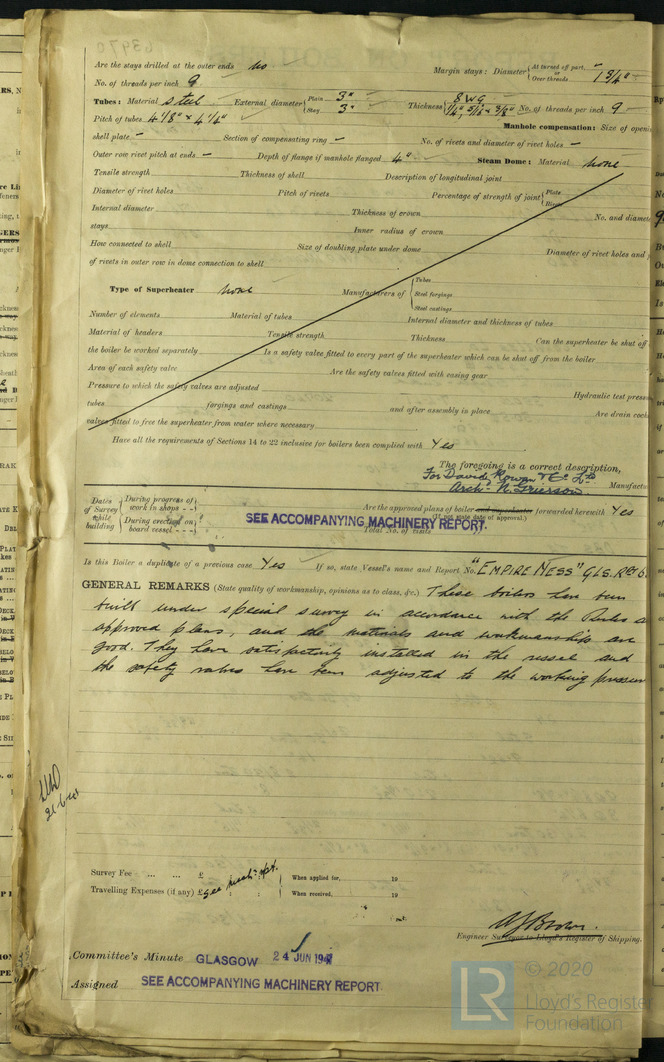 Are the stays drilled at the outer ends No Margin stays: Diameter { At turned off part, – or Over threads 1 3/4"
No. of threads per inch 9
Tubes: Material Steel External diameter { Plain 3" Stay 3" Thickness { 8 WG 1/4", 5/16" & 3/8" No. of threads per inch 9
Pitch of tubes 4 1/8" x 4 1/4" Manhole compensation: Size of openi
shell plate – Section of compensating ring – No. of rivets and diameter of rivet holes –
Outer row rivet pitch at ends – Depth of flange if manhole flanged 4" Steam Dome: Material None
Tensile strength Thickness of shell Description of longitudinal joint
Diameter of rivet holes Pitch of rivets Percentage of strength of joint { Plate Rivets
Internal diameter Thickness of crown No. and diamete
stays Inner radius of crown
How connected to shell Size of doubling plate under dome Diameter of rivet holes and p
of rivets in outer row in dome connection to shell
Type of Superheater None Manufacturers of { Tubes Steel forgings Steel castings
Number of elements Material of tubes Internal diameter and thickness of tubes
Material of headers Tensile strength Thickness Can the superheater be shut off
the boiler be worked separately Is a safety valve fitted to every part of the superheater which can be shut off from the boiler
Area of each safety valve Are the safety valves fitted with easing gear
Pressure to which the safety valves are adjusted Hydraulic test pressu
tubes forgings and castings and after assembly in place Are drain cock
valves fitted to free the superheater from water where necessary
Have all the requirements of Sections 14 to 22 inclusive for boilers been complied with Yes
The foregoing is a correct description,
For David Rowan & Co Ltd
Archd. W. Grierson. Manufactu
Dates of Survey while building { During progress of work in shops - - During erection on board vessel - - -
Are the approved plans of boiler and superheater forwarded herewith Yes
(If not state date of approval.)
SEE ACCOMPANYING MACHINERY REPORT.
Total No. of visits
Is this Boiler a duplicate of a previous case Yes If so, state Vessel's name and Report No. "EMPIRE NESS" GLS. RPT 6
GENERAL REMARKS (State quality of workmanship, opinions as to class, &c.) These boilers have been
built under special survey in accordance with the Rules a
approved plans, and the materials and workmanship are
good. They have satisfactorily installed in the vessel and
the safety valves have been adjusted to the working pressure
Survey Fee ... ... £ : : When applied for, 19
Travelling Expenses (if any) £ : : When received, 19
See mach. rpt.
A J Brown.
Engineer Surveyor to Lloyd's Register of Shipping.
Committee's Minute GLASGOW 24 JUN 194
Assigned SEE ACCOMPANYING MACHINERY REPORT
© 2020
LR Lloyd's Register
Foundation